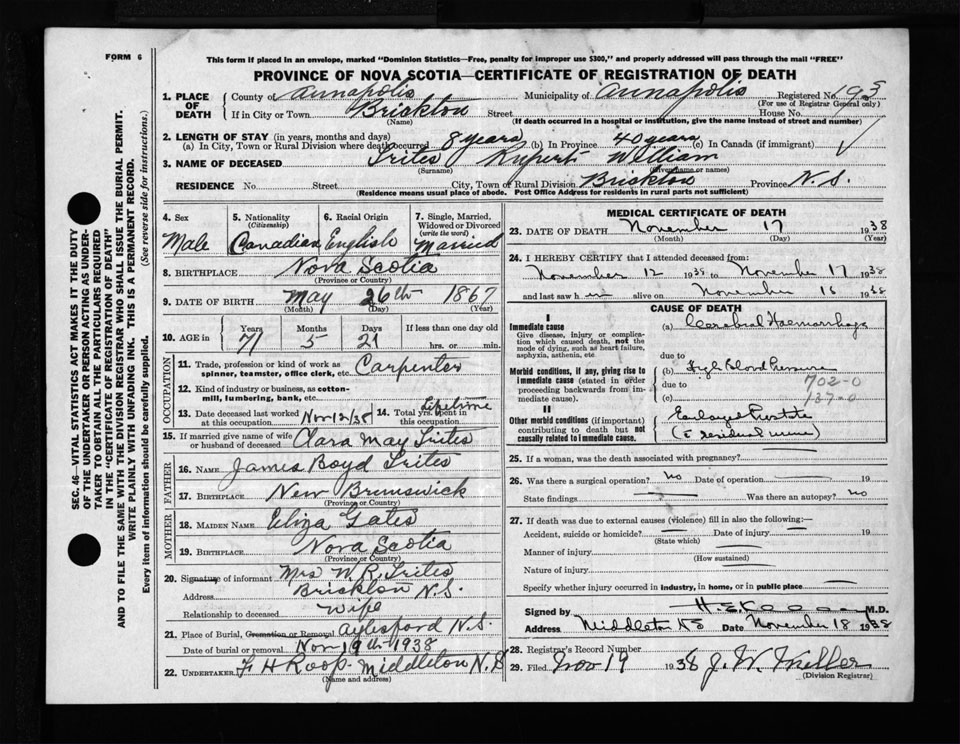 FORM 6
This form if placed in an envelope, marked "Dominion Statistics—Free, penalty for improper use $300," and properly addressed will pass through the mail "FREE"
PROVINCE OF NOVA SCOTIA—CERTIFICATE OF REGISTRATION OF DEATH
1. PLACE OF DEATH County of Annapolis Municipality of Annapolis Registered No. 93
(For use of Registrar General only)
If in City or Town Brickton Street House No.
(Name) (If death occurred in a hospital or institution, give the name instead of street and number)
2. LENGTH OF STAY (in years, months and days)
(a) In City, Town or Rural Division where death occurred 8 years (b) In Province 40 years (c) In Canada (if immigrant)
3. NAME OF DECEASED Trites Rupert William
(Surname) (Given name or names)
RESIDENCE No. Street City, Town or Rural Division Brickton Province N.S.
(Residence means usual place of abode. Post Office Address for residents in rural parts not sufficient)
4. Sex Male
5. Nationality (Citizenship) Canadian
6. Racial Origin English
7. Single, Married, Widowed or Divorced (write the word) Married
8. BIRTHPLACE Nova Scotia
(Province or Country)
9. DATE OF BIRTH May 26th 1867
(Month) (Day) (Year)
10. AGE in Years 71 Months 5 Days 21 If less than one day old
hrs. or min.
OCCUPATION
11. Trade, profession or kind of work as spinner, teamster, office clerk, etc. Carpenter
12. Kind of industry or business, as cotton-mill, lumbering, bank, etc.
13. Date deceased last worked at this occupation Nov 12/38 14. Total yrs. spent in this occupation Lifetime
15. If married give name of wife or husband of deceased Clara May Trites
FATHER
16. NAME James Boyd Trites
17. BIRTHPLACE New Brunswick
MOTHER
18. MAIDEN NAME Eliza Gates
19. BIRTHPLACE Nova Scotia
(Province or Country)
20. Signature of informant Mrs W. R. Trites
Address Brickton N.S.
Relationship to deceased Wife
21. Place of Burial, Cremation or Removal Aylesford N.S.
Date of burial or removal Nov 19th 1938
22. UNDERTAKER F H Roop Middleton N.S
(Name and address)
MEDICAL CERTIFICATE OF DEATH
23. DATE OF DEATH November 17 1938
(Month) (Day) (Year)
24. I HEREBY CERTIFY that I attended deceased from:
November 12 1938 to November 17 1938
and last saw him alive on November 16 1938
CAUSE OF DEATH
I
Immediate cause
Give disease, injury or complication which caused death, not the mode of dying, such as heart failure, asphyxia, asthenia, etc.
(a) Cerebral Haemorrhage
due to
Morbid conditions, if any, giving rise to immediate cause (stated in order proceeding backwards from immediate cause).
(b) High Blood Pressure
due to 702-0
(c) 137-0
II
Other morbid conditions (if important) contributing to death but not causally related to immediate cause.
Enlarged Prostate
(c residual urine)
25. If a woman, was the death associated with pregnancy?
26. Was there a surgical operation? no Date of operation 19
State findings Was there an autopsy? no
27. If death was due to external causes (violence) fill in also the following:—
Accident, suicide or homicide? Date of injury 19
(State which)
Manner of injury
(How sustained)
Nature of injury
Specify whether injury occurred in industry, in home, or in public place
Signed by M.D.
Address Middleton NS Date November 18 1938
28. Registrar's Record Number
29. Filed Nov 19 1938 J. W. Miller
(Division Registrar)
SEC. 46—VITAL STATISTICS ACT MAKES IT THE DUTY
OF THE UNDERTAKER OR PERSON ACTING AS UNDER-
TAKER TO OBTAIN ALL THE PARTICULARS REQUIRED
IN THE "CERTIFICATE OF REGISTRATION OF DEATH"
AND TO FILE THE SAME WITH THE DIVISION REGISTRAR WHO SHALL ISSUE THE BURIAL PERMIT.
WRITE PLAINLY WITH UNFADING INK. THIS IS A PERMANENT RECORD.
Every item of information should be carefully supplied. (See reverse side for instructions.)